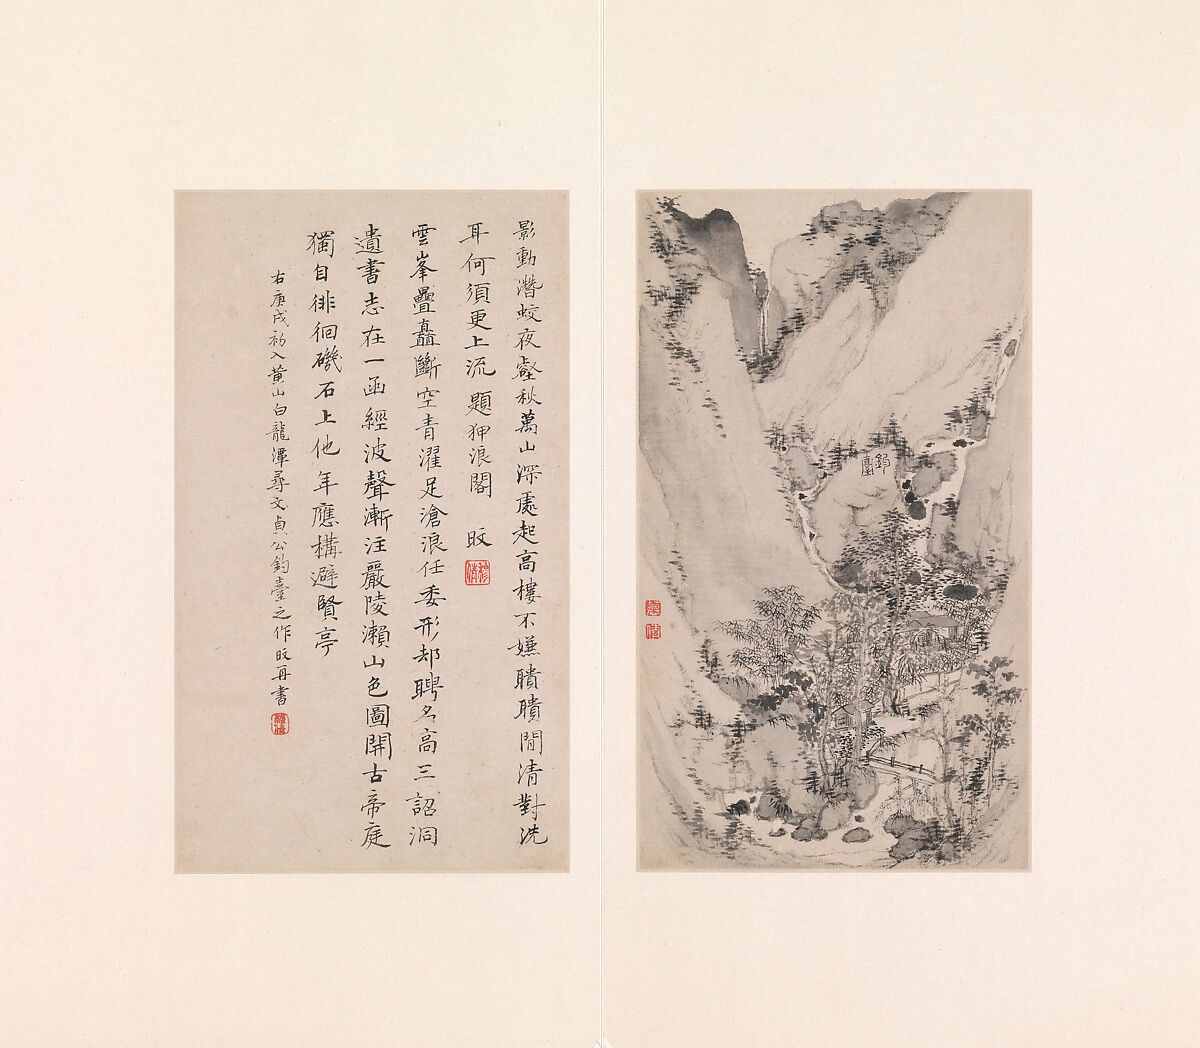 影動潛蛟夜壑秋萬山深處起高樓不嫌聵聵閒清對洗
耳何須更上流 題狎浪閣 旼
雲峯疊矗斷空青濯足滄浪任委形却聘名高三詔洞
遺書志在一函經波聲漸注嚴陵瀨山色圖開古帝庭
獨自徘徊磯石上他年應構避賢亭
右庚戌初入黃山白龍潭尋文貞公釣臺之作旼再書
釣
臺